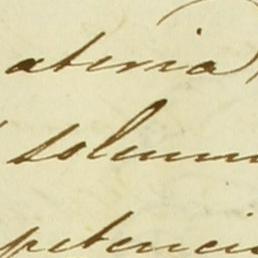 ateria
solemn
petenci